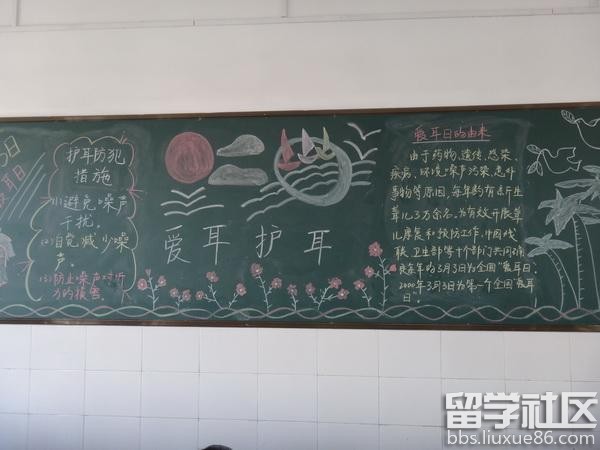 3日
爱耳日
护耳防犯
措施
(1)避免噪声
干扰。
(2)自觉减少噪
声。
(3)防止噪声对听
力的损害
爱耳护耳
爱耳日的由来
由于药物、遗传、感染、
疾病、环境噪声污染、意外
事故等原因,每年约有新生
聋儿3万余名。为有效开展聋
儿康复和预防工作,中国残
联、卫生部等十个部门共同确
定每年的3月3日为全国"爱耳日
2000年3月3日为第一个全国"爱耳
日"。
留学社区
bbs.liuxue86.com